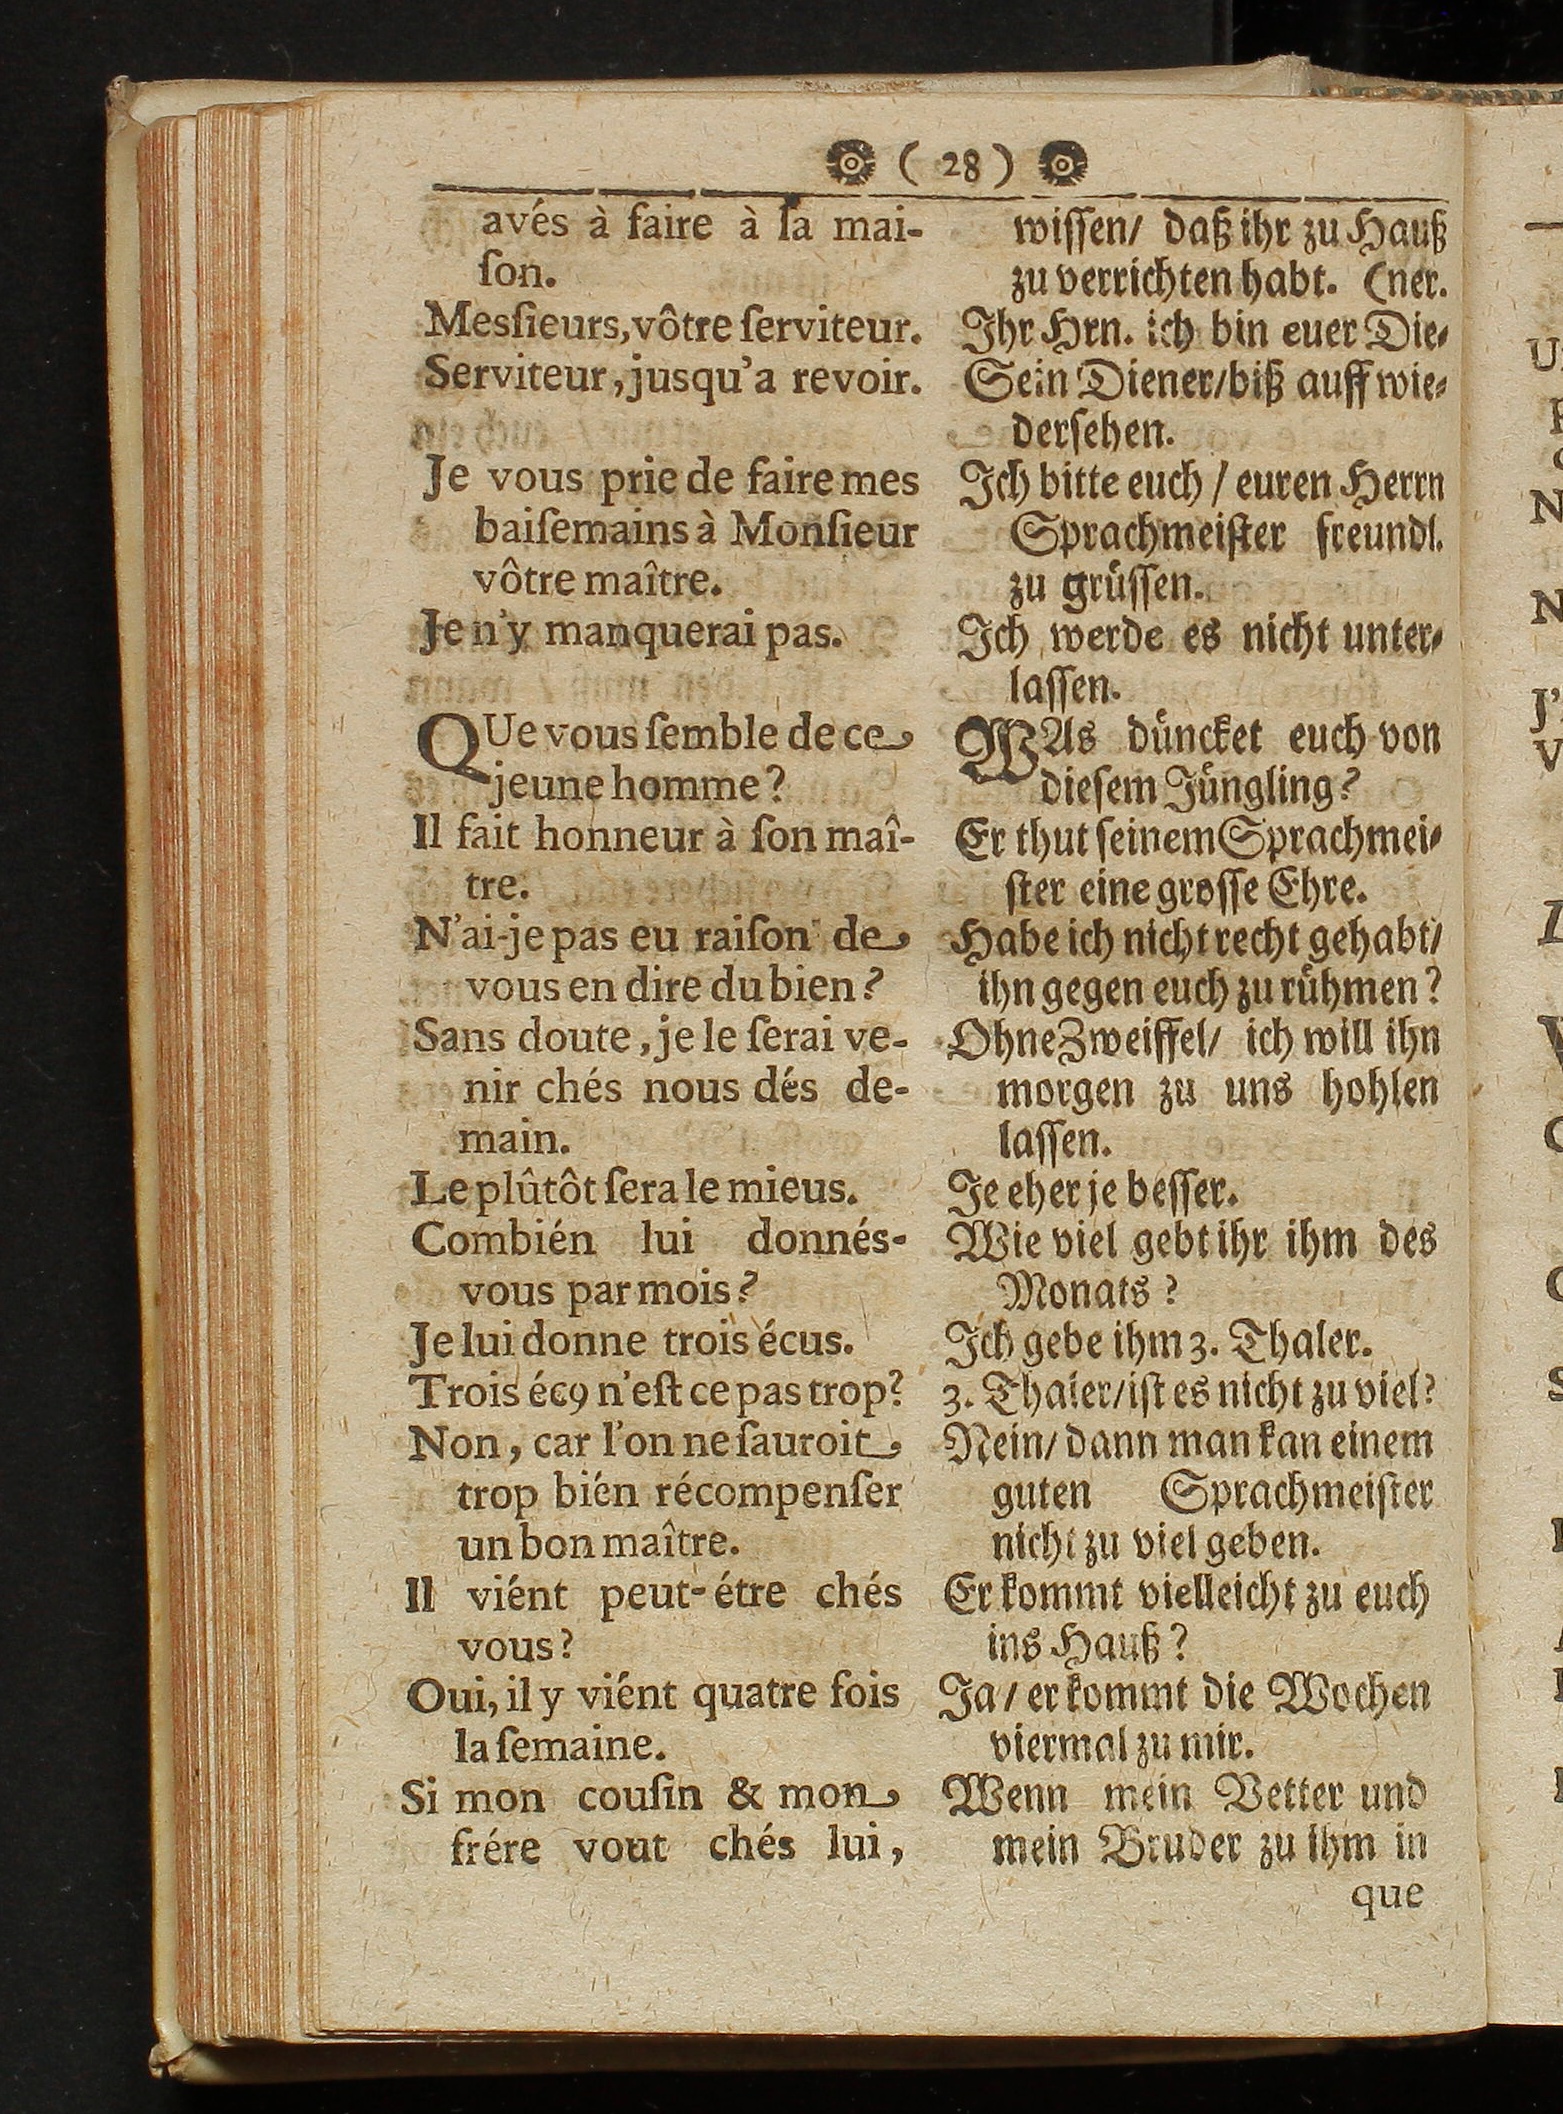 ( 28 )
avés à faire à ſa mai-
ſon.
Mesſieurs, vôtre ſerviteur.
Serviteur, jusqu'a revoir.
Je vous prie de faire mes
baiſemains à Monſieur
vôtre maître.
Je n'y manquerai pas.
QUe vous ſemble de ce
jeune homme?
Il fait honneur à ſon maî-
tre.
N'ai-je pas eu raiſon de
vous en dire du bien?
Sans doute, je le ferai ve-
nir chés nous dés de-
main.
Le plûtôt ſera le mieus.
Combién lui donnés-
vous par mois?
Je lui donne trois écus.
Trois écꝰ n'eſt ce pas trop?
Non, car l'on ne ſauroit
trop bién récompenſer
un bon maître.
Il viént peut-étre chés
vous?
Oui, il y viént quatre fois
la ſemaine.
Si mon couſin & mon
frére vont chés lui,
wiſſen/ daß ihr zu Hauß
zu verrichten habt. (ner.
Ihr Hrn. ich bin euer Die⸗
Sein Diener/ biß auff wie⸗
derſehen.
Ich bitte euch / euren Herrn
Sprachmeiſter freundl.
zu gruͤſſen.
Ich werde es nicht unter⸗
laſſen.
WAs duͤncket euch von
dieſem Juͤngling?
Er thut ſeinem Sprachmei⸗
ſter eine groſſe Ehre.
Habe ich nicht recht gehabt/
ihn gegen euch zu ruͤhmen?
Ohne Zweiffel/ ich will ihn
morgen zu uns hohlen
laſſen.
Je eher je beſſer.
Wie viel gebt ihr ihm des
Monats?
Ich gebe ihm 3. Thaler.
3. Thaler/ iſt es nicht zu viel?
Nein/ dann man kan einem
guten Sprachmeiſter
nicht zu viel geben.
Er kommt vielleicht zu euch
ins Hauß?
Ja / er kommt die Wochen
viermal zu mir.
Wenn mein Vetter und
mein Bruder zu ihm in
que